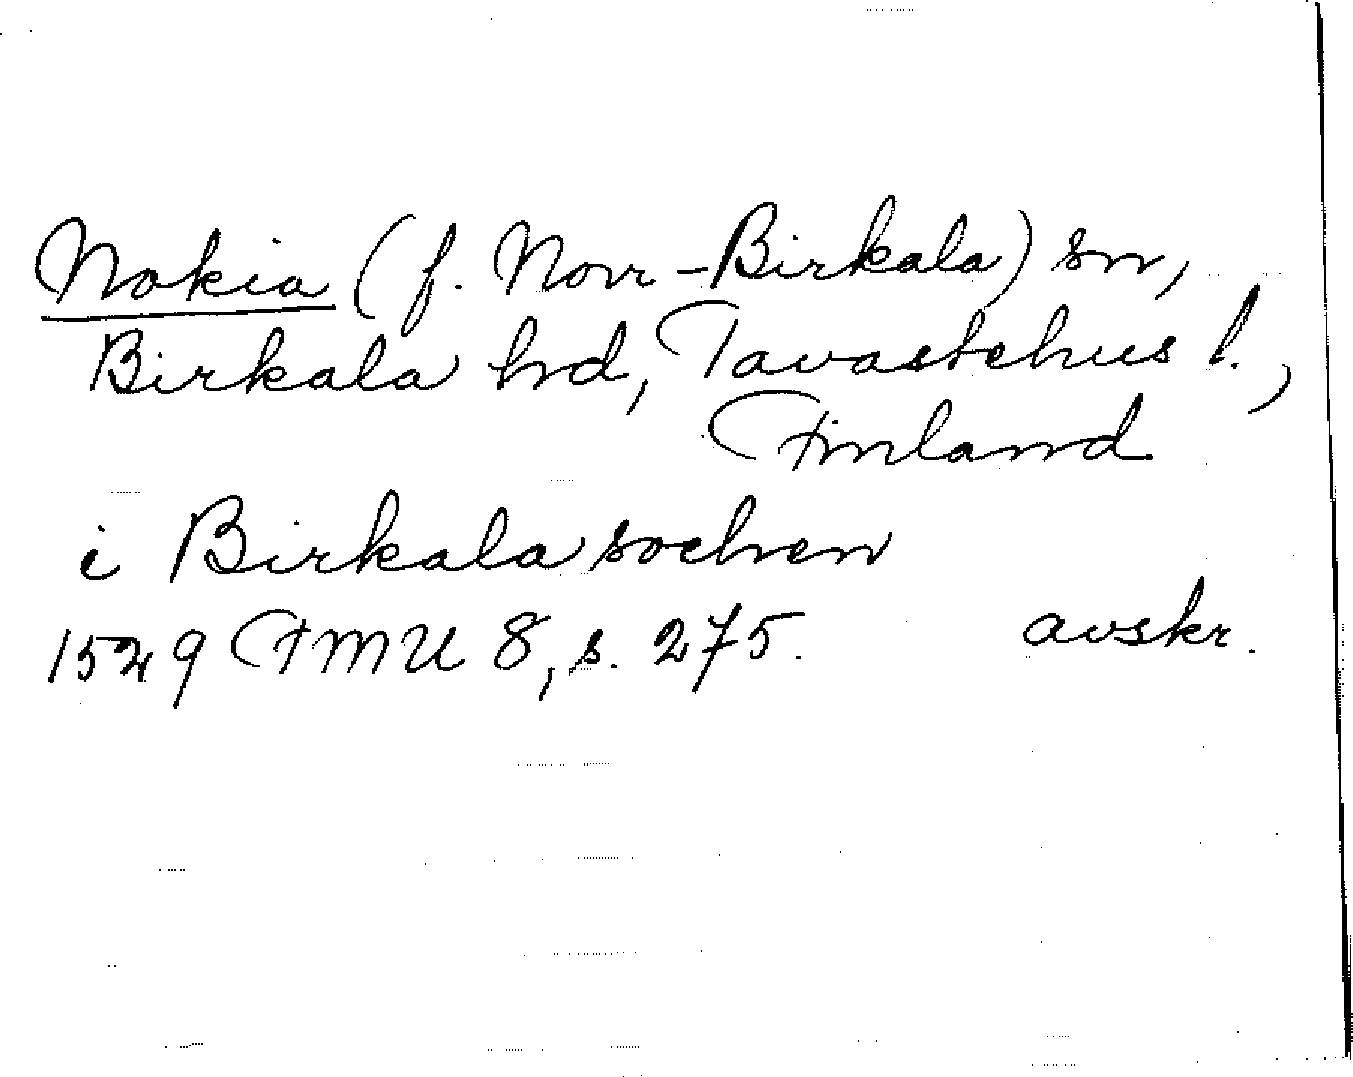 Nokia (f. Norr-Birkala) sn,
Birkala hrd, Tavastehus l.,
Finland
i Birkala sochen
1529 FMU 8, s. 275. avskr.